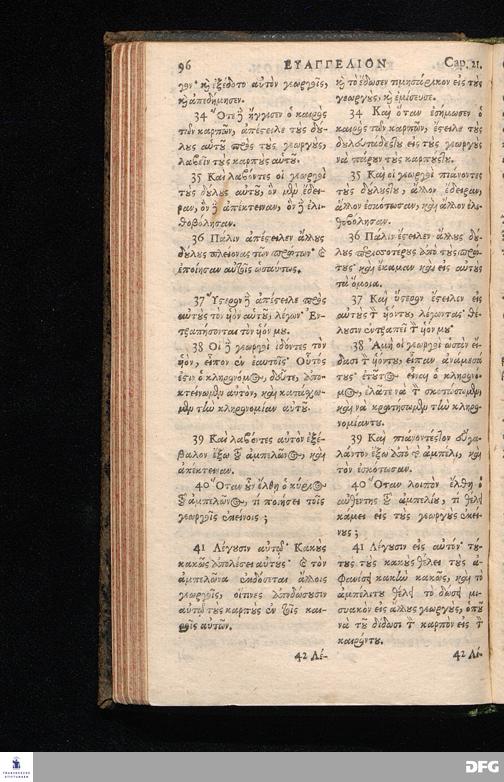 96 ΕΥΑΓΓΕΛΙΟΝ Cap. 21.
γον· καὶ ἐξέδοτο αὐτὸν γεωργοῖς,
καὶ ἀπεδήμησεν.
34 Ὅτε δὲ ἤγγισεν ὁ καιρὸς
τῶν καρπῶν, ἀπέστειλε τοὺς δού-
λους αὑτοῦ πρὸς τοὺς γεωργοὺς,
λαβεῖν τοὺς καρποὺς αὑτοῦ.
35 Καὶ λαβόντες οἱ γεωργοὶ
τοὺς δούλους αὐτοῦ, ὃν μὲν ἔδει-
ραν, ὃν δὲ ἀπέκτειναν, ὃν δὲ ἐλι-
θοβόλησαν.
36 Πάλιν ἀπέστειλεν ἄλλους
δούλους πλείονας τῶν πρώτων· καὶ
ἐποίησαν αὐτοῖς ὡσαύτως.
37 Ὕστερον δὲ ἀπέστειλε πρὸς
αὐτοὺς τὸν υἱὸν αὑτοῦ, λέγων· Ἐν-
τραπήσονται τὸν υἱόν μου.
38 Οἱ δὲ γεωργοὶ ἰδόντες τὸν
υἱὸν, εἶπον ἐν ἑαυτοῖς· Οὗτός
ἐστιν ὁ κληρονόμος, δεῦτε, ἀπο-
κτείνωμεν αὐτὸν, καὶ κατάσχω-
μεν τὴν κληρονομίαν αὐτοῦ.
39 Καὶ λαβόντες αὐτὸν ἐξέ-
βαλον ἔξω τοῦ ἀμπελῶνος, καὶ
ἀπέκτειναν.
40 Ὅταν οὖν ἔλθῃ ὁ κύριος
τοῦ ἀμπελῶνος, τί ποιήσει τοῖς
γεωργοῖς ἐκείνοις;
41 Λέγουσιν αὐτῷ· Κακοὺς
κακῶς ἀπολέσει αὐτούς· καὶ τὸν
ἀμπελῶνα ἐκδόσεται ἄλλοις
γεωργοῖς, οἵτινες ἀποδώσουσιν
αὐτῷ τοὺς καρποὺς ἐν τοῖς και-
ροῖς αὐτῶν.
42 Λέ-
καὶ τὸ ἔδωσεν εἰς τοὺς
γεωργοὺς, καὶ ἐμίσευσε.
34 Καὶ ὅταν ἐσήμωσεν ὁ
καιρὸς τῶν καρπῶν, ἔστειλε τοὺς
δούλους του εἰς τοὺς γεωργοὺς
νὰ πάρουν τοὺς καρπούς του.
35 Καὶ οἱ γεωργοὶ πιάνοντες
τοὺς δούλους του, ἄλλον ἔδειραν,
ἄλλον ἐσκότωσαν, καὶ ἄλλον ἐλι-
θοβόλησαν.
36 Πάλιν ἔστειλεν ἄλλους δού-
λους περισσοτέρους ἀπὸ τοὺς πρώ-
τους· καὶ ἔκαμαν καὶ εἰς αὐτοὺς
τὰ ὅμοια.
37 Καὶ ὕστερον ἔστειλεν εἰς
αὐτοὺς τὸν υἱόν του, λέγωντας· Θέ-
λουσιν ἐντραπεῖ τὸν υἱόν μου.
38 Ἀμὴ οἱ γεωργοὶ ὡσὰν εἴ-
δασι τὸν υἱόν του, εἶπαν ἀνάμεσά
τους· ἐτοῦτος εἶναι ὁ κληρονό-
μος, ἐλᾶτε νὰ τὸν σκοτώσωμεν,
καὶ νὰ κρατήσωμεν τὴν κληρο-
νομίαν του.
39 Καὶ πιάνοντές τον εὐγά-
λαν τον ἔξω ἀπὸ τὸ ἀμπέλι, καὶ
τὸν ἐσκότωσαν.
40 Ὅταν λοιπὸν ἔλθῃ ὁ
αὐθέντης τοῦ ἀμπελιοῦ, τί θέλει
κάμει εἰς τοὺς γεωργοὺς ἐκεί-
νους;
41 Λέγουσιν εἰς αὐτόν· τού-
τους τοὺς κακοὺς θέλει τοὺς ἀ-
φανίσει κακῶν κακῶς, καὶ τὸ
ἀμπέλι του θέλει τὸ δώσῃ μι-
σιακὸν εἰς ἄλλους γεωργοὺς, ὁποῦ
νὰ τοῦ δίδωσι τὸν καρπὸν εἰς τὸν
καιρόν του.
42 Λέ-
FRANCKESCHE STIFTUNGEN
DFG